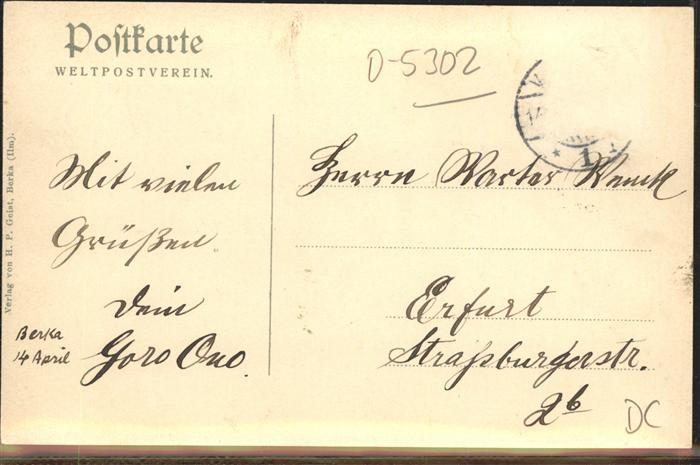 Postkarte
WELTPOSTVEREIN.
D-5302
Verlag von H. P. Geist, Berka (Ilm).
Mit vielen
Grüßen.
Dein
Goro Ono.
Berka
14 April
Herrn Warter Wenck
Erfurt
Straßburgerstr.
2b
DC
1